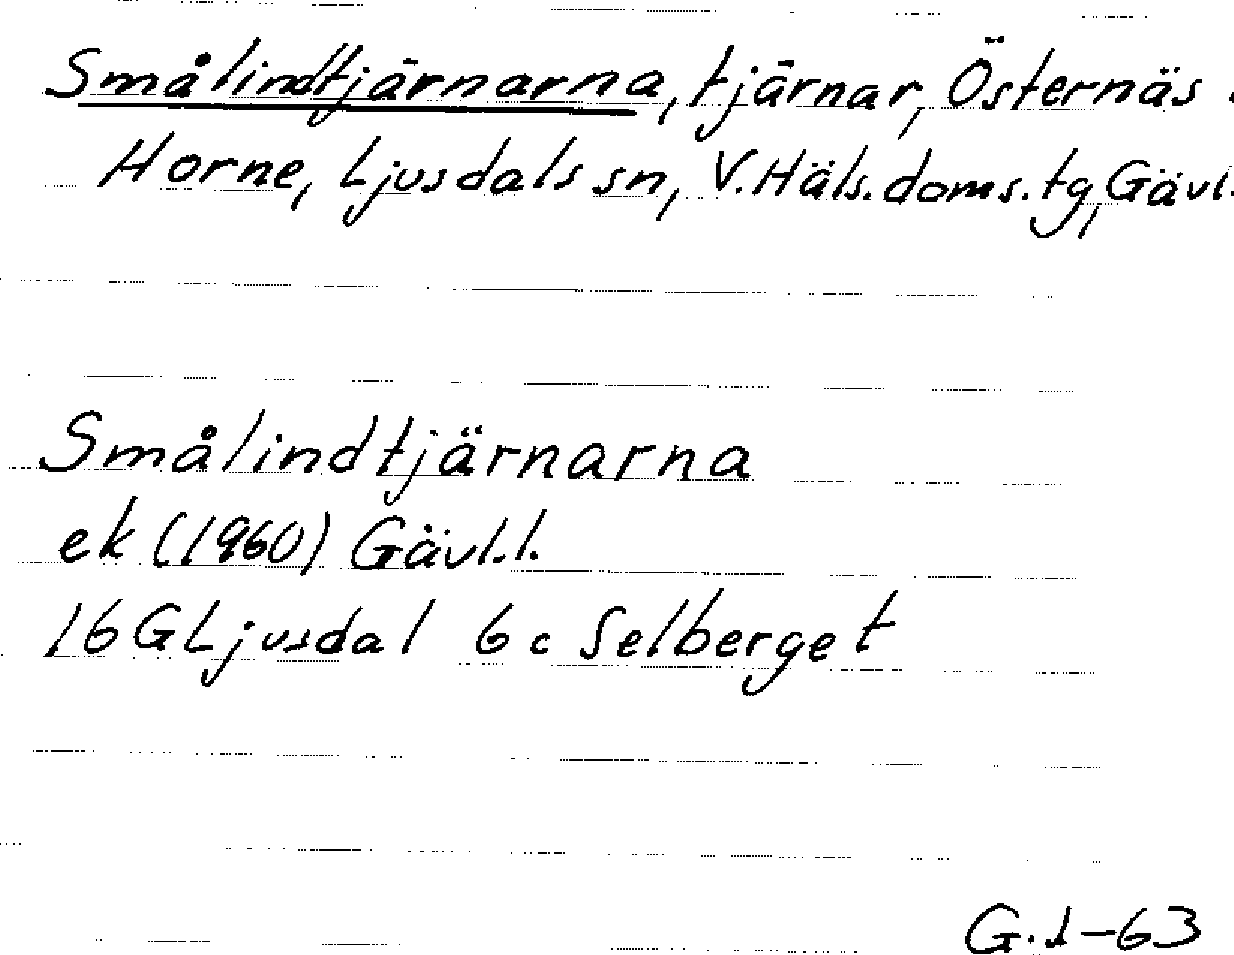 Smålindtjärnarna, tjärnar, Östernäs
Horne, Ljusdals sn, V. Häls. doms. tg, Gävl.
Smålindtjärnarna
ek (1960) Gävl. l.
16 G Ljusdal 6 c Selberget
G. 1-63